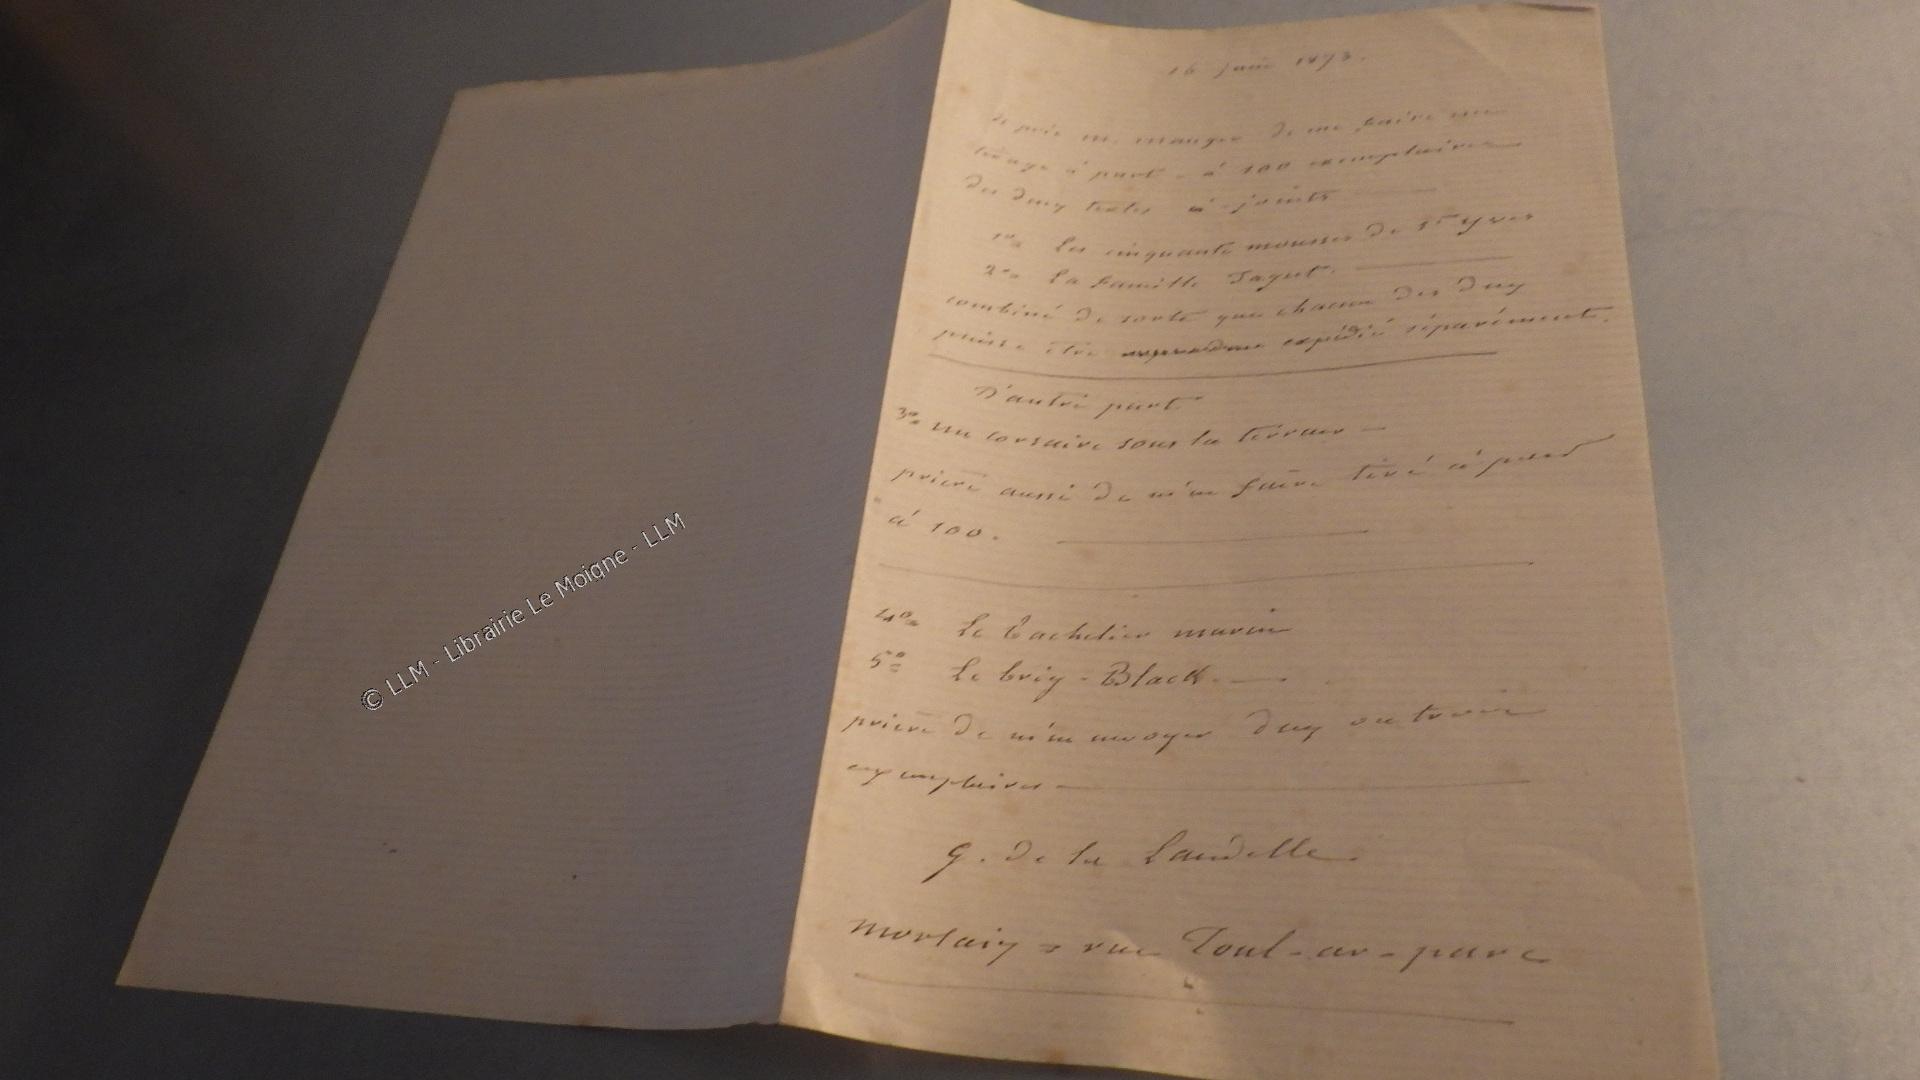 16 juin 1873.
Je prie M. Mauger de me faire un
tirage à part - à 100 exemplaires
des deux textes ci-joints
1º= Les cinquante mousses de St Yves
2º= La famille
combiné de sorte que chacun des deux
puisse être expédié séparément.
D'autre part
3º= un corsaire sous la terreur —
prière aussi de m'en faire tiré à part
à 100.
4º= Le Bachelier marin
5º= Le brig-Black —
prière de m'en envoyer deux ou trois
exemplaires —
G. de la Landelle.
Morlaix = rue Toul-ar-parc
© LLM - Librairie Le Moigne - LLM